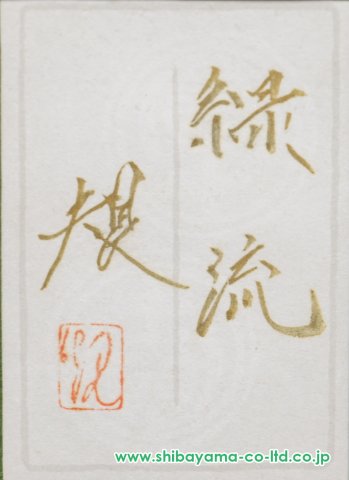 緑流
規
www.shibayama-co-ltd.co.jp